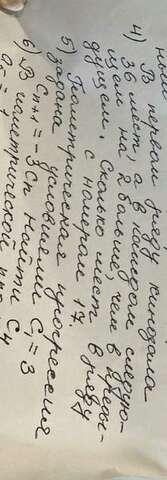 4) В первом ряду кинозала
36 мест, а в каждом следую-
щем на 2 больше, чем в преды-
дущем. Сколько мест в ряду
с номером 17.
5) Геометрическая прогрессия
задана условиями C₁ = 3
Cₙ₊₁ = -3Cₙ найти C₄
6) В геометрической